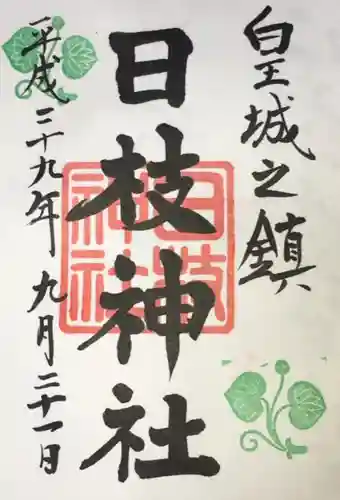 皇城之鎮
日枝神社
日枝
神社
平成二十九年九月二十一日